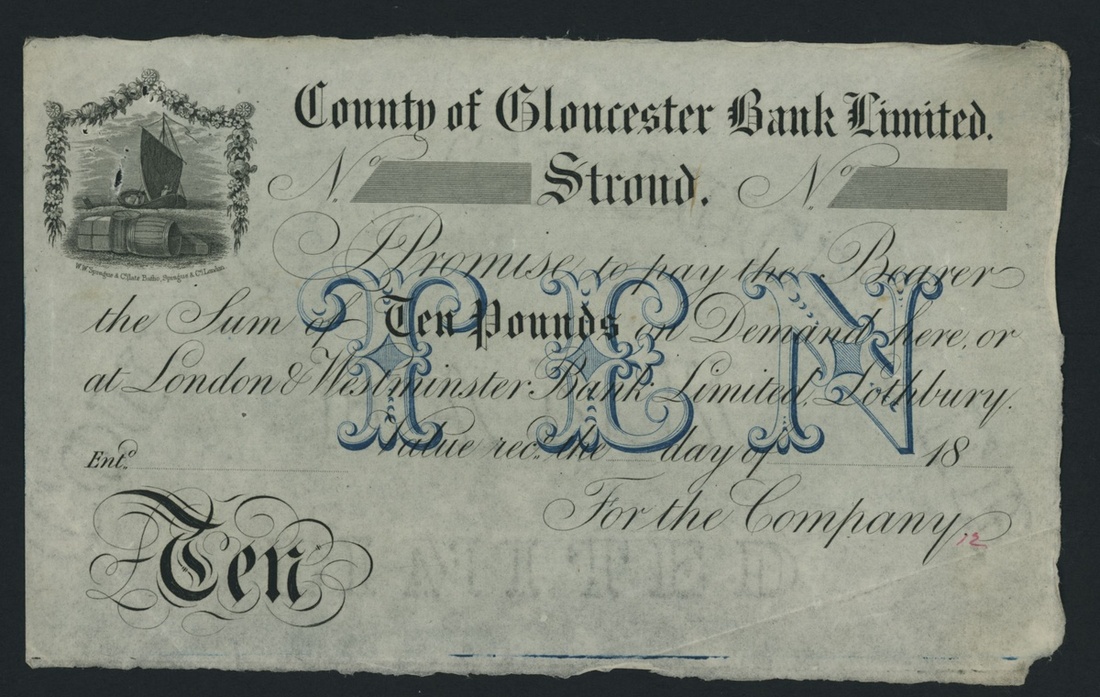 County of Gloucester Bank Limited.
No. Stroud. No
I Promise to pay the Bearer
the Sum of Ten Pounds on Demand here, or
at London & Westminster Bank Limited, Lothbury.
Value recd. the day of 18
Entd.
For the Company
12
Ten
TEN
W.W. Sprague & Co. London.